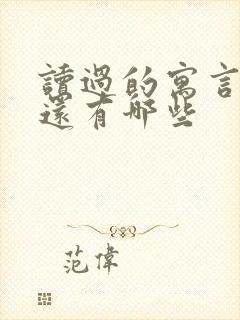 讀過的寓言
還有哪些
范偉